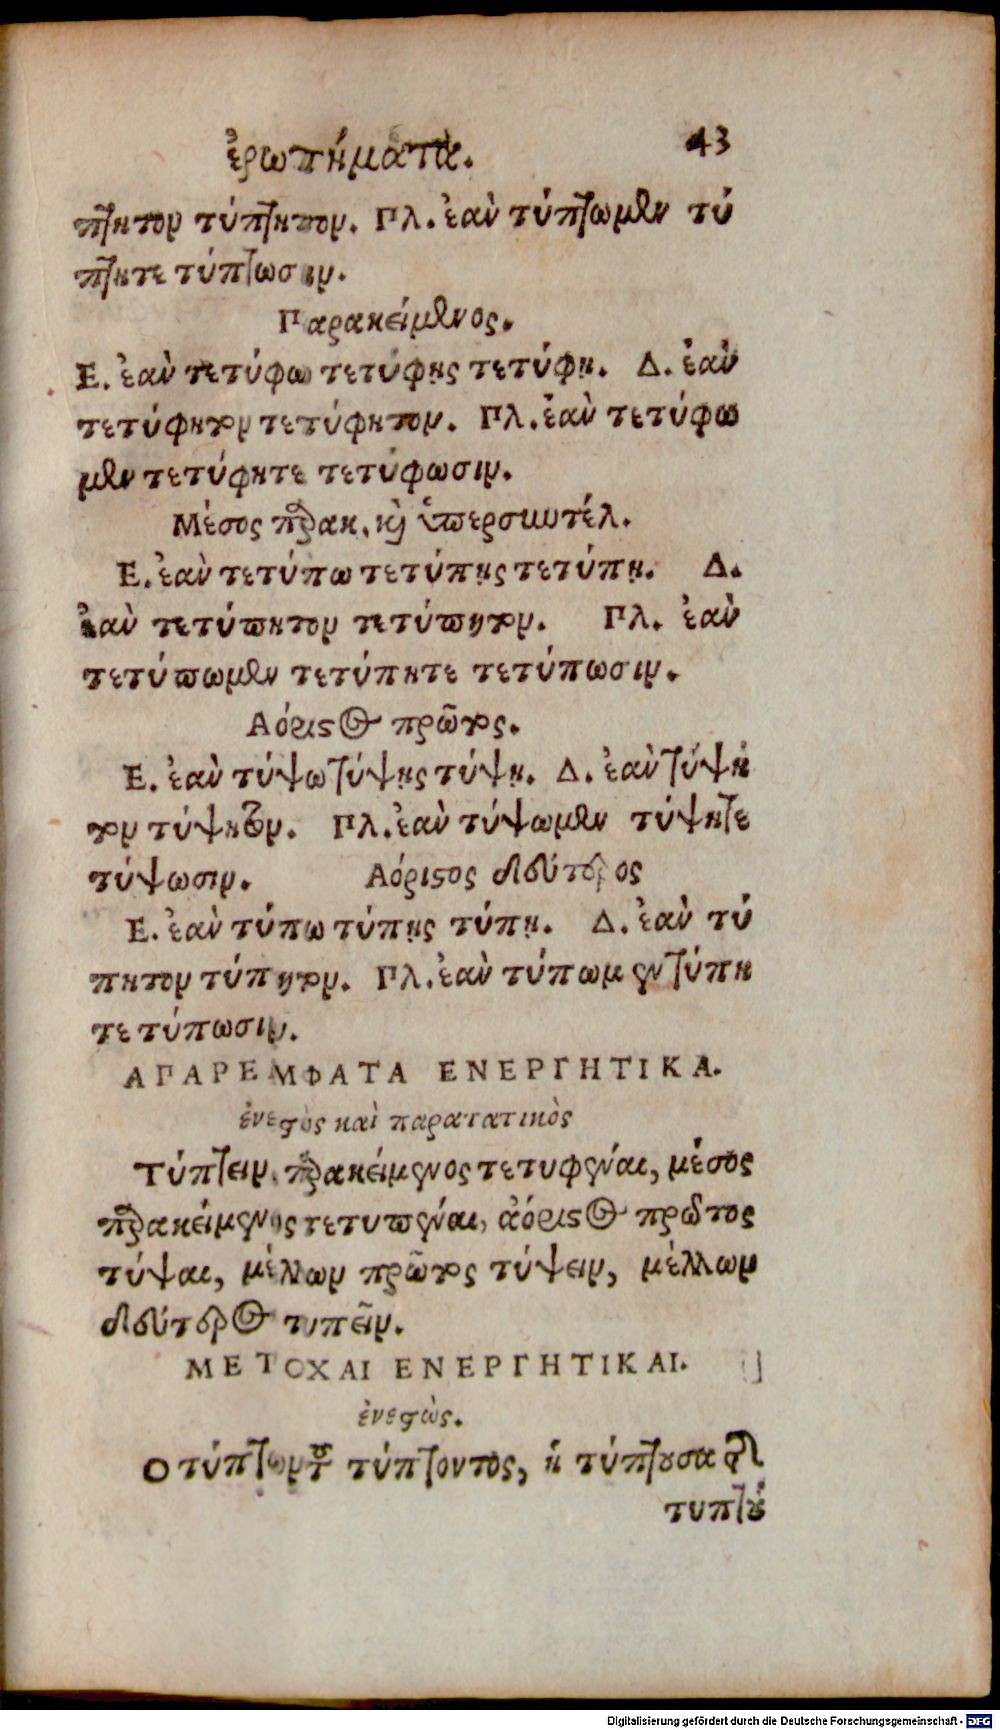 ἐρωτήματα. 43
πτητον τύπτητον. Πλ. ἐὰν τύπτωμεν τύ
πτητε τύπτωσιν.
Παρακείμενος.
Ε. ἐὰν τετύφω τετύφῃς τετύφῃ. Δ. ἐὰν
τετύφητον τετύφητον. Πλ. ἐὰν τετύφω
μεν τετύφητε τετύφωσιν.
Μέσος παρακ. καὶ ὑπερσυντέλ.
Ε. ἐὰν τετύπω τετύπῃς τετύπῃ. Δ.
ἐὰν τετύπητον τετύπητον. Πλ. ἐὰν
τετύπωμεν τετύπητε τετύπωσιν.
Αόριστος πρῶτος.
Ε. ἐὰν τύψω τύψῃς τύψῃ. Δ. ἐὰν τύψη
τον τύψητον. Πλ. ἐὰν τύψωμεν τύψητε
τύψωσιν. Αόριστος δεύτερος
Ε. ἐὰν τύπω τύπῃς τύπῃ. Δ. ἐὰν τύ
πητον τύπητον. Πλ. ἐὰν τύπωμεν τύπη
τε τύπωσιν.
ΑΠΑΡΕΜΦΑΤΑ ΕΝΕΡΓΗΤΙΚΑ.
ἐνεστὼς καὶ παρατατικὸς
Τύπτειν, παρακείμενος τετυφέναι, μέσος
παρακείμενος τετυπέναι, ἀόριστος πρῶτος
τύψαι, μέλλων πρῶτος τύψειν, μέλλων
δεύτερος τυπεῖν.
ΜΕΤΟΧΑΙ ΕΝΕΡΓΗΤΙΚΑΙ.
ἐνεστώς.
Ο τύπτων τοῦ τύπτοντος, ἡ τύπτουσα τῆς
τυπτού
Digitalisierung gefördert durch die Deutsche Forschungsgemeinschaft - DFG